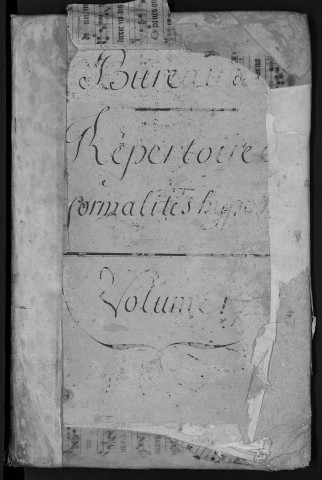 Bureau de
Répertoire
formalités hypo
Volume